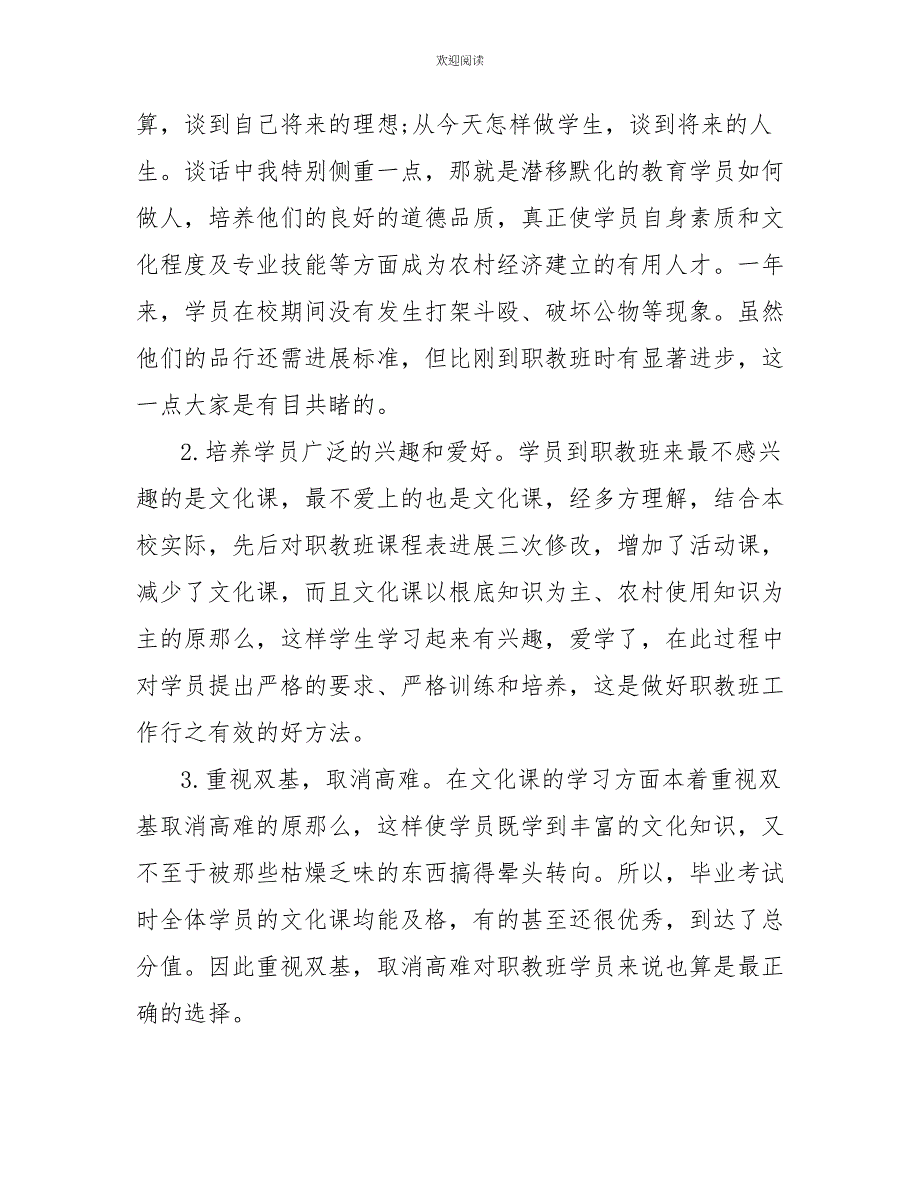 欢迎阅读
算，谈到自己将来的理想;从今天怎样做学生，谈到将来的人
生。谈话中我特别侧重一点，那就是潜移默化的教育学员如何
做人，培养他们的良好的道德品质，真正使学员自身素质和文
化程度及专业技能等方面成为农村经济建立的有用人才。一年
来，学员在校期间没有发生打架斗殴、破坏公物等现象。虽然
他们的品行还需进展标准，但比刚到职教班时有显著进步，这
一点大家是有目共睹的。
2.培养学员广泛的兴趣和爱好。学员到职教班来最不感兴
趣的是文化课，最不爱上的也是文化课，经多方理解，结合本
校实际，先后对职教班课程表进展三次修改，增加了活动课，
减少了文化课，而且文化课以根底知识为主、农村使用知识为
主的原那么，这样学生学习起来有兴趣，爱学了，在此过程中
对学员提出严格的要求、严格训练和培养，这是做好职教班工
作行之有效的好方法。
3.重视双基，取消高难。在文化课的学习方面本着重视双
基取消高难的原那么，这样使学员既学到丰富的文化知识，又
不至于被那些枯燥乏味的东西搞得晕头转向。所以，毕业考试
时全体学员的文化课均能及格，有的甚至还很优秀，到达了总
分值。因此重视双基，取消高难对职教班学员来说也算是最正
确的选择。